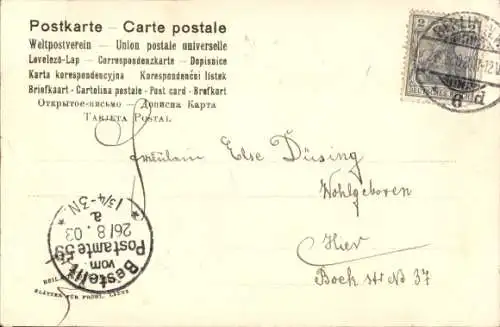 Postkarte – Carte postale
Weltpostverein – Union postale universelle
Levelező-Lap – Correspondenzkarte – Dopisnice
Karta korespondencyjna Korespondenční lístek
Briefkaart – Cartolina postale – Post card – Brefkort
Открытое-письмо – Дописна Карта
Tarjeta Postal
2
Fräulein Else Düsing
Wohlgeboren
Hier
Bock str No 37
Bestellt
vom
Postamte 59
26/8.03
a.
* 1¾-3N *